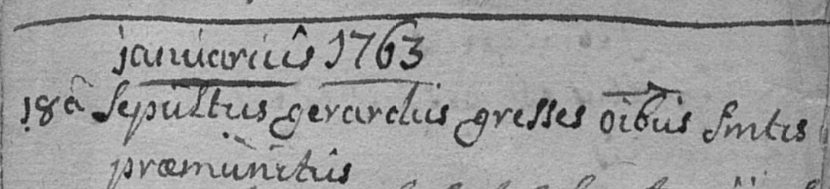 januariûs 1763
18â Sepultus gerardus gresses oibus Smtis
præmunitûs